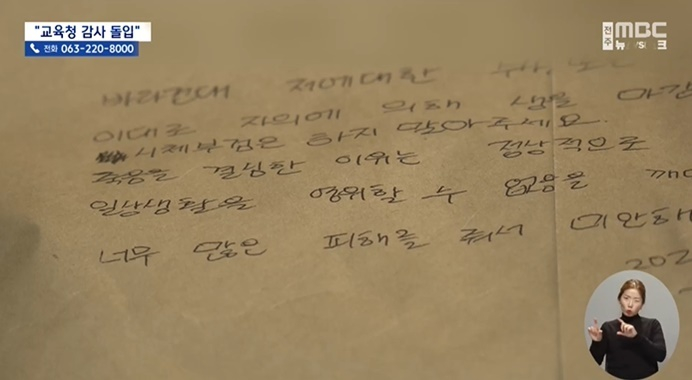 "교육청 감사 돌입"
전화 063-220-8000
전주 MBC
뉴스
바라건대 저에대한
이대로 자의에 의해 생을 마감
시체부검은 하지 말아주세요.
죽음을 결심한 이유는 정상적으로
일상생활을 영위할 수 없음을
너무 많은 피해를 줘서 미안해
202